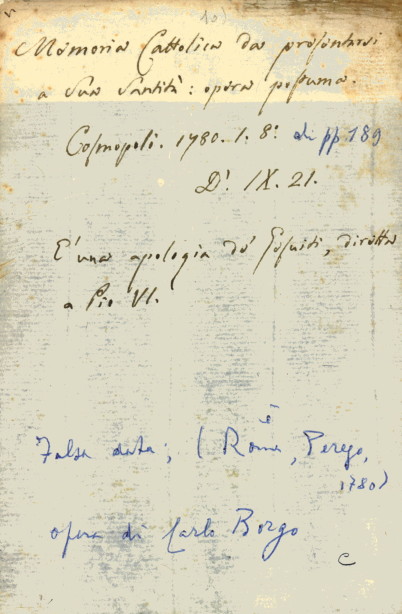 10)
Memoria Cattolica da presentarsi
a Sua Santità: opera postuma.
Cosmopoli. 1780. 1. 8º. di pp 189
D'. IX. 21.
E' una apologia de' Gesuiti, diretta
a Pio VI.
Falsa data; (è Roma, Perego,
1780)
opera di Carlo Borgo
C